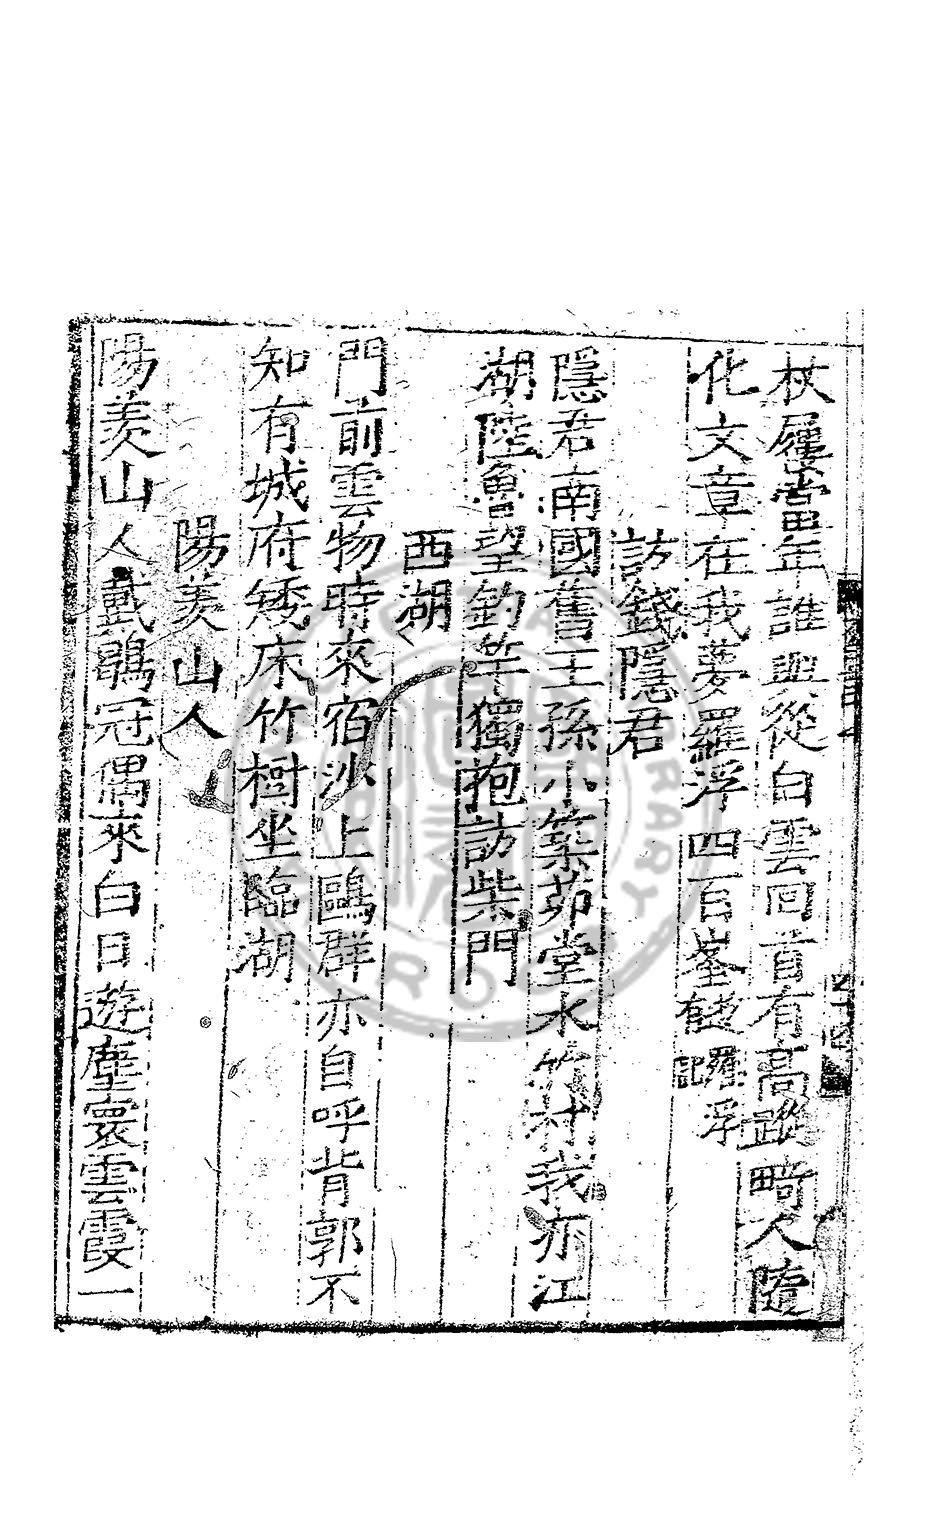 杖屨當年誰與從白雲回首有高蹤畸人隨
化文章在我夢羅浮四百峯餕羅浮記
訪錢隱君
隱君南國舊王孫小築茆堂水竹村我亦江
湖陸魯望釣竿獨抱訪柴門
西湖
門前雲物時來宿沙上鷗群亦自呼背郭不
知有城府矮床竹樹坐臨湖
陽羨山人
陽羨山人戴鶡冠偶來白日遊塵寰雲霞一